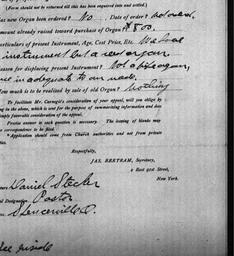 (Form should not be returned till this has been enquired into and settled.)
Has new Organ been ordered? No. Date of order? Not ordered.
Amount already raised toward purchase of Organ? $800.
Particulars of present Instrument, Age, Cost Price, Etc. We have
no instrument but a reed organ.
Reason for displacing present Instrument? Not a pipe organ,
inadequate to our needs.
How much is to be realized by sale of old Organ? Nothing
To facilitate Mr. Carnegie's consideration of your appeal, will you oblige by
in the above, which is sent for the purpose of summarizing information and does
imply favorable consideration of the appeal.
Precise answer to each question is necessary. The leaving of blanks may
correspondence to be filed.
* Application should come from Church authorities and not from private
Respectfully,
JAS. BERTRAM, Secretary,
2 East 91st Street,
New York.
Daniel Stecker
Designation, Pastor
Spencerville, O.
inside